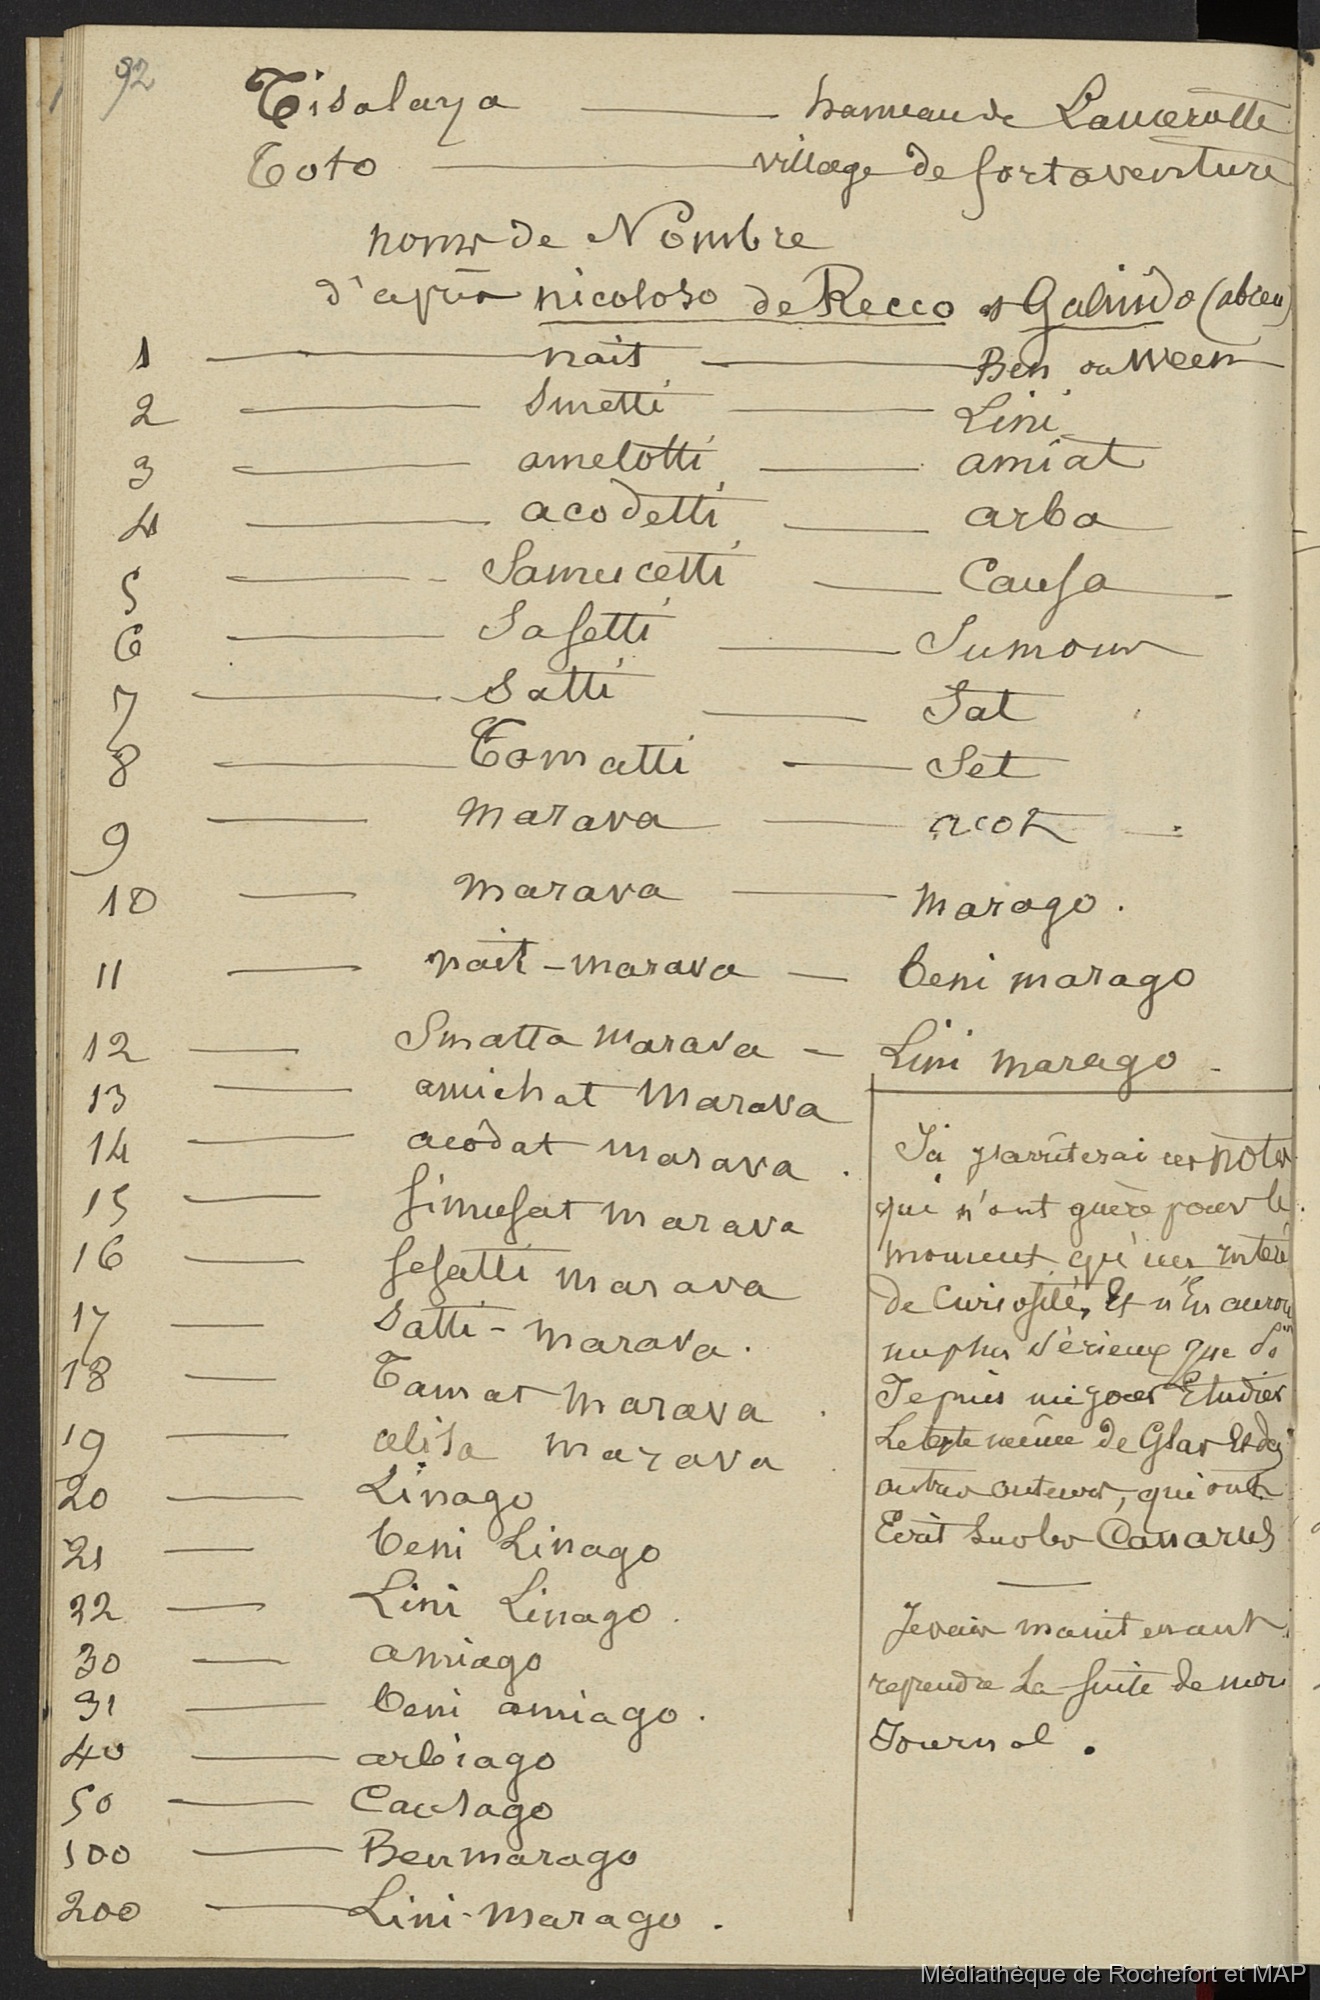 92
Tisalaya — hameau de Lancerotte
Toto — village de fortaventure
noms de Nombre
d'après nicoloso de Recco et Galindo (abreu)
1 — nait — Ben ou Ween
2 — Smetti — Lini
3 — amelotti — amiat
4 — acodetti — arba
5 — Samucetti — Causa
6 — Sasetti — Sumous
7 — Satti — Sat
8 — Tamatti — Set
9 — marava — acot
10 — marava — marago.
11 — nait-marava — beni marago
12 — Smatta marava — Lini marago
13 — amichat marava
14 — acodat marava.
15 — simusat marava
16 — sesatti marava
17 — Satti-marava.
18 — Tamat marava
19 — alisa marava
20 — Linago
21 — beni Linago
22 — Lini Linago.
30 — amiago
31 — beni amiago.
40 — arbiago
50 — Causago
100 — Benmarago
200 — Lini-marago.
J'arrêterai ces notes
qui n'ont guère pour le
moment qu'un intérê
de curiosité, Et n'En auron
un plus sérieux que
Je puis un jour Etudier
Le texte même de Glas Et des
autres auteurs, qui ont
Ecrit sur les Canaries
—
Je vais maintenant
reprendre La suite de mon
Journal.
Médiathèque de Rochefort et MAP